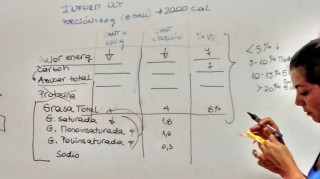 INFORM NUT
PORCIÓN: 30g → 2000 Cal
CANT x 100g CANT x PORCIÓN % VD
Valor energ
Carboh
Azúcar total
Proteína
Grasa Total 4 8%
G. saturada 1,8
G. Monoinsaturada 1,6
G. Poliinsaturada 0,3
Sodio
< 5%
5-10%
10-15%
> 20%